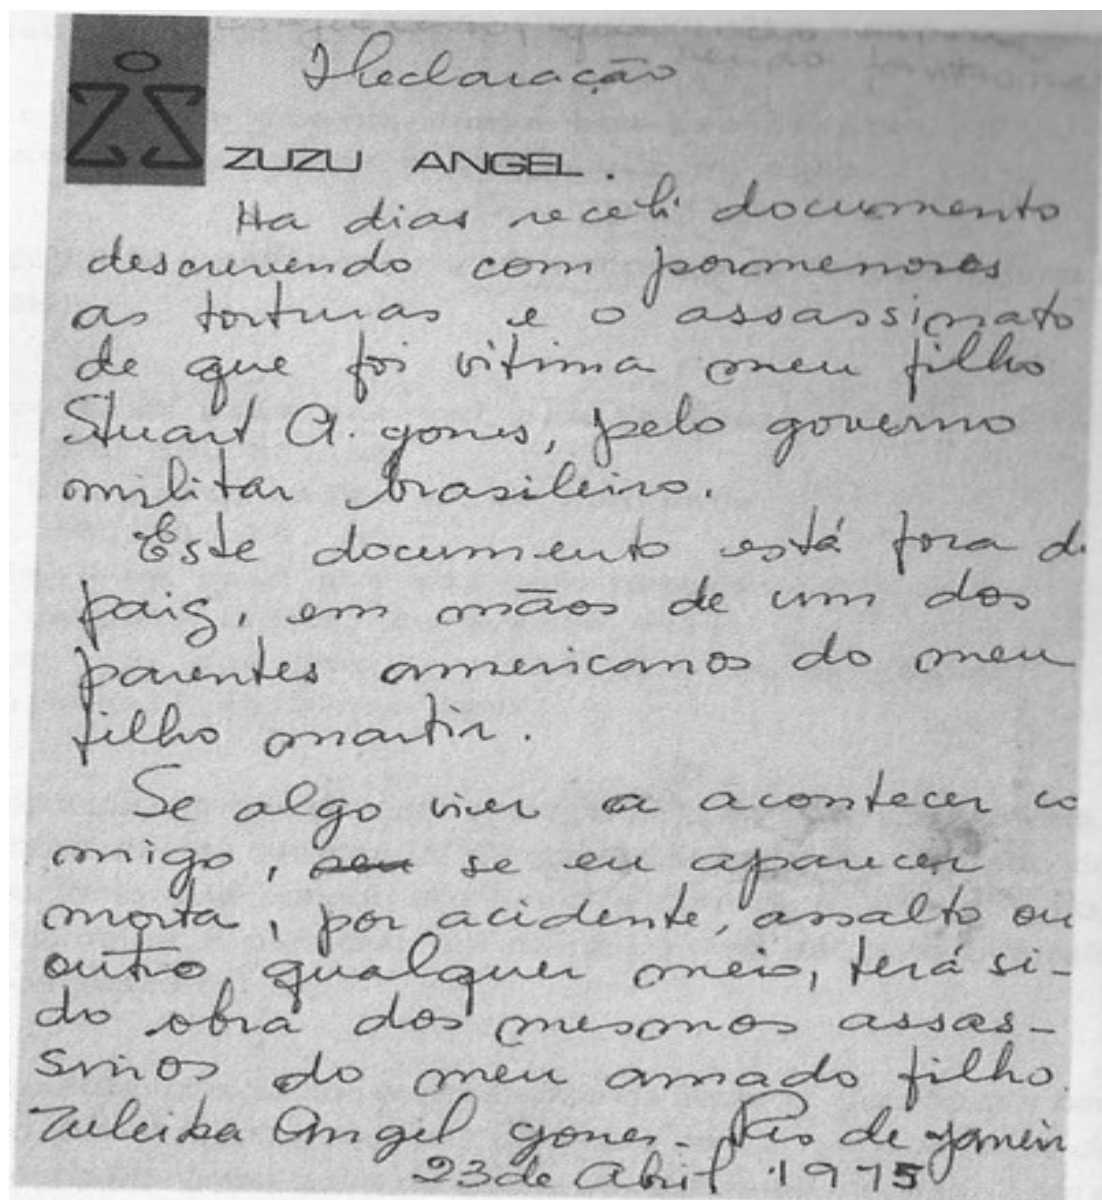 Declaração
ZUZU ANGEL.
Ha dias recebi documento
descrevendo com pormenores
as torturas e o assassinato
de que foi vitima meu filho
Stuart A. gomes, pelo governo
militar brasileiro.
Este documento está fora d
paiz, em mãos de um dos
parentes americanos do meu
filho martir.
Se algo vier a acontecer co
migo, se eu aparecer
morta, por acidente, assalto ou
outro qualquer meio, terá si-
do obra dos mesmos assas-
sinos do meu amado filho.
Zuleika Angel gomes - Rio de janeiro
23 de Abril 1975